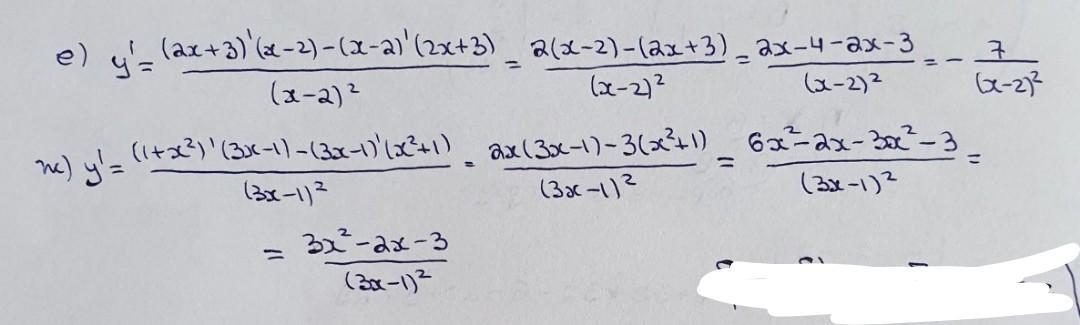 e) y' = ((2x+3)'(x-2)-(x-2)'(2x+3))/(x-2)² = (2(x-2)-(2x+3))/(x-2)² = (2x-4-2x-3)/(x-2)² = - 7/(x-2)²
ж) y' = ((1+x²)'(3x-1)-(3x-1)'(x²+1))/(3x-1)² = (2x(3x-1)-3(x²+1))/(3x-1)² = (6x²-2x-3x²-3)/(3x-1)² =
= (3x²-2x-3)/(3x-1)²